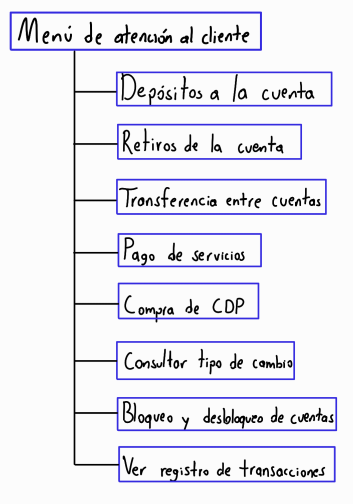 Menú de atención al cliente
Depósitos a la cuenta
Retiros de la cuenta
Transferencia entre cuentas
Pago de servicios
Compra de CDP
Consultor tipo de cambio
Bloqueo y desbloqueo de cuentas
Ver registro de transacciones